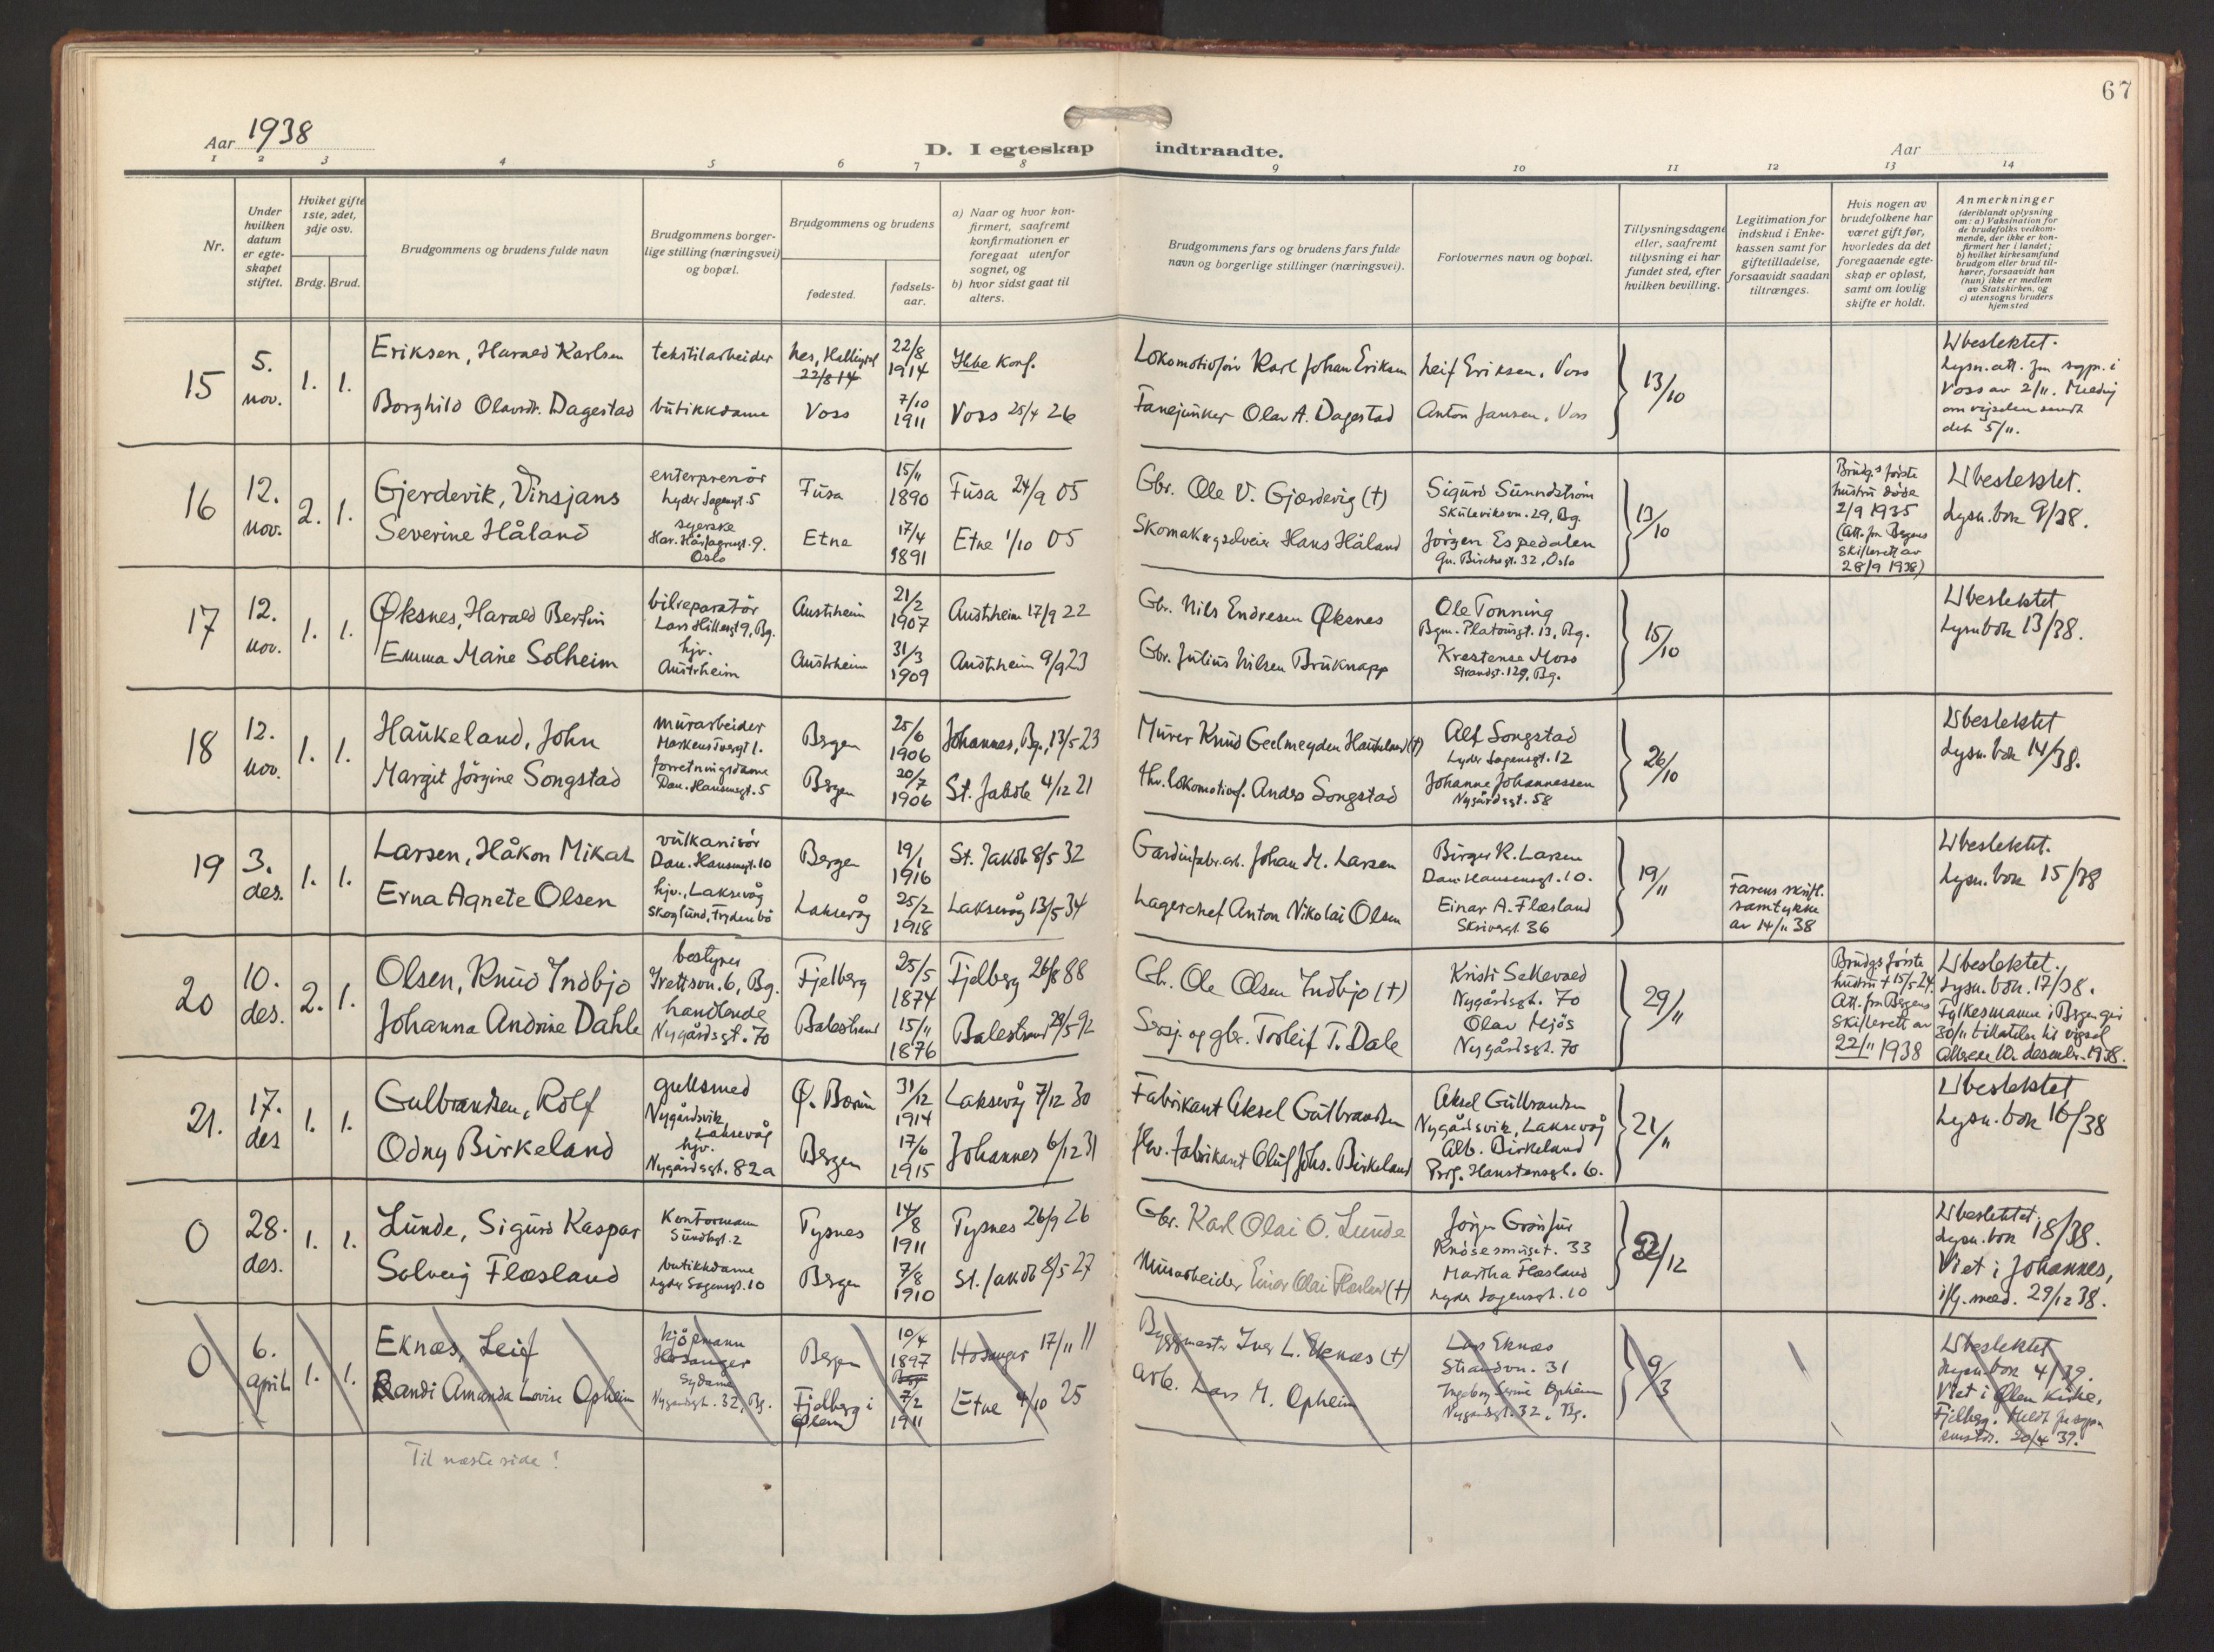 67
Aar 1938
D. I egteskap indtraadte.
Aar
1 2 3 4 5 6 7 8 9 10 11 12 13 14
Nr.
Under hvilken datum er egte-skapet stiftet.
Hvilket gifte 1ste, 2det, 3dje osv.
Brdg. Brud.
Brudgommens og brudens fulde navn
Brudgommens borger-lige stilling (næringsvei) og bopæl.
Brudgommens og brudens
fødested.
fødsels-aar.
a) Naar og hvor kon-firmert, saafremt konfirmationen er foregaat utenfor sognet, og
b) hvor sidst gaat til alters.
Brudgommens fars og brudens fars fulde navn og borgerlige stillinger (næringsvei).
Forlovernes navn og bopæl.
Tillysningsdagene eller, saafremt tillysning ei har fundet sted, efter hvilken bevilling.
Legitimation for indskud i Enke-kassen samt for giftetilladelse, forsaavidt saadan tiltrænges.
Hvis nogen av brudefolkene har været gift før, hvorledes da det foregaaende egte-skap er opløst, samt om lovlig skifte er holdt.
Anmerkninger
(deriblandt oplysning om: a) Vaksination for de brudefolks vedkom-mende, der ikke er kon-firmert her i landet; b) hvilket kirkesamfund brudgom eller brud til-hører, forsaavidt han (hun) ikke er medlem av Statskirken, og c) utensogns bruders hjemsted
15 5. nov. 1. 1.
Eriksen, Harald Karlsen tekstilarbeider Nes, Hallingdal 22/8 14 22/8 1914 Ikke konf.
Lokomotivfør. Karl Johan Eriksen Leif Eriksen, Voss 13/10
Borghild Olavsdt. Dagestad butikkdame Voss 7/10 1911 Voss 25/4 26
Fanejunker Olav A. Dagestad Anton Jansen, Voss
Ubeslektet.
Lysn. att. fra sogpr. i
Voss av 2/11.
om vigselen sendt
den 5/11.
16 12. nov. 2. 1.
Gjerdevik, Vinsjans enterprenör Lyder Sagensgt. 5 Fusa 15/11 1890 Fusa 24/9 05
Gbr. Ole V. Gjærdevig (†) Sigurd Sunndström Skuteviksvn. 29, Bg. 13/10
Severine Håland syerske Har. Hårfagresgt. 9. Oslo Etne 17/4 1891 Etne 1/10 05
Skomakersvein Hans Håland Jörgen Espedalen Gu. Birchsgt. 32, Oslo
Brudg.s første
hustru døde
2/9 1935
(Att. fra Bergens
skifterett av
28/9 1938)
Ubeslektet.
Lysn. bok 9/38.
17 12. nov. 1. 1.
Øksnes, Harald Bertin bilreparatör Lars Hillesgt 9, Bg. Austrheim 21/2 1907 Austrheim 17/9 22
Gbr. Nils Endresen Øksnes Ole Tonning Bgm. Platousgt. 13, Bg. 15/10
Emma Marie Solheim hjv. Austrheim Austrheim 31/3 1909 Austrheim 9/9 23
Gbr. Julius Nilsen Bruknapp Krestense Moss Strandgt. 129, Bg.
Ubeslektet
Lysn bok 13/38.
18 12. nov. 1. 1.
Haukeland, John murarbeider Bergen 25/6 1906 Johannes, Bg., 13/5 23
Murer Knud Geelmeyden Haukeland (†) Alf Songstad Lyder Sagensgt. 12 26/10
Margit Jörgine Songstad forretningsdame Dan. Hansensgt. 5 Bergen 20/7 1906 St. Jakob 4/12 21
fhv. lokomotivf. Anders Songstad Johanne Johannessen Nygårdsgt. 58
Ubeslektet
Lysn. bok 14/38.
19 3. des. 1. 1.
Larsen, Håkon Mikal vulkanisör Dan. Hansensgt. 10 Bergen 19/1 1916 St. Jakob 8/5 32
Gardinfabr.arb. Johan M. Larsen Birger R. Larsen Dan. Hansensgt. 10. 19/11
Erna Agnete Olsen hjv., Laksevåg Skoglund, Frydenbö Laksevåg 25/2 1918 Laksevåg 13/5 34
Lagerchef Anton Nikolai Olsen Einar A. Flæsland Skivergt. 36
Farens skriftl.
samtykke
av 14/11 38
Ubeslektet.
Lysn. bok 15/38
20 10. des. 2. 1.
Olsen, Knud Indbjo bestyrer Bg. Fjelberg 25/5 1874 Fjelberg 26/8 88
Gbr. Ole Olsen Indbjo (†) Kristi Sellevoed Nygårdsgt. 70 29/11
Johanna Andrine Dahle handlende Nygårdsgt. 70 Balestrand 15/11 1876 Balestrand 29/5 92
Sersj. og gbr. Torleif T. Dale Olav Mjös Nygårdsgt. 70
Brudgs første
hustru † 15/5 24.
Att. fra Bergens
skifterett av
22/11 1938
Ubeslektet.
Lysn. bok. 17/38.
Fylkesmannen i Bergen gir
30/11 tillatelse til vigsel
allerede 10. desember 1938.
21. 17. des 1. 1.
Gulbrandsen, Rolf gullsmed Nygårdsvik, Laksevåg Ø. Borim 31/12 1914 Laksevåg 7/12 30
Fabrikant Aksel Gulbrandsen Aksel Gulbrandsen Nygårdsvik, Laksevåg 21/11
Odny Birkeland hjv. Nygårdsgt. 82a Bergen 17/6 1915 Johannes 6/12 31
fhv. fabrikant Oluf Johs. Birkeland Alb. Birkeland Prof. Hanstensgt. 6.
Ubeslektet
Lysn. bok 16/38
0 28. des. 1. 1.
Lunde, Sigurd Kaspar Kontormann Sundtsgt. 2 Tysnes 14/8 1911 Tysnes 26/9 26
Gbr. Karl Olai O. Lunde Jörgen Grönfur Knösesmuget. 33 /12
Solveig Flæsland butikkdame Lyder Sagensgt. 10 Bergen 7/8 1910 St. Jakob 8/5 27
Murarbeider Einar Olai Flæsland (†) Martha Flæsland Lyder Sagensgt. 10
Ubeslektet.
Lysn. bok 18/38.
Viet i Johannes,
iflg. med. 29/12 38.
0 6. april 1. 1.
Eknæs, Leif kjöpmann Hosanger Bergen 10/4 1897 Hosanger 17/11 11
Byggmester Iver L. Eknæs (†) Lars Eknæs Strandvn. 31 9/3
Randi Amanda Lovise Opheim Sydame Nygårdsgt. 32, Bg. Fjelberg i Ølen 7/2 1911 Etne 4/10 25
Arb. Lars M. Opheim Ingeborg Serine Opheim Nygårdsgt. 32, Bg.
Ubeslektet
Lysn. bok 4/39.
Viet i Ølen kirke,
Fjelberg. Meldt fra sogpr.
20/4 39.
Til næste side!